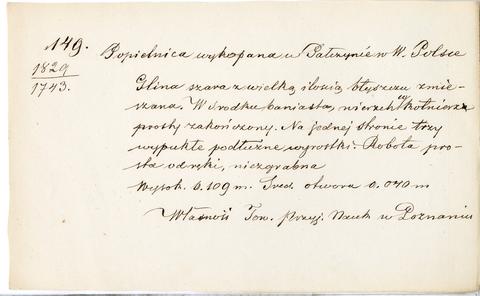 149.
1829
1743.
Popielnica wykopana w Pałczynie w W. Polsce
Glina szara z wielką ilością błyszczu zmie-
szana. W środku baniasta, wierzch w kołnierz
prosty zakończony. Na jednej stronie trzy
wypukłe podłużne wyrostki. Robota pro-
sta od ręki, niezgrabna
Wysok. 0.109 m. Śred. otworu 0.070 m
Własność Tow. Przyj. Nauk w Poznaniu